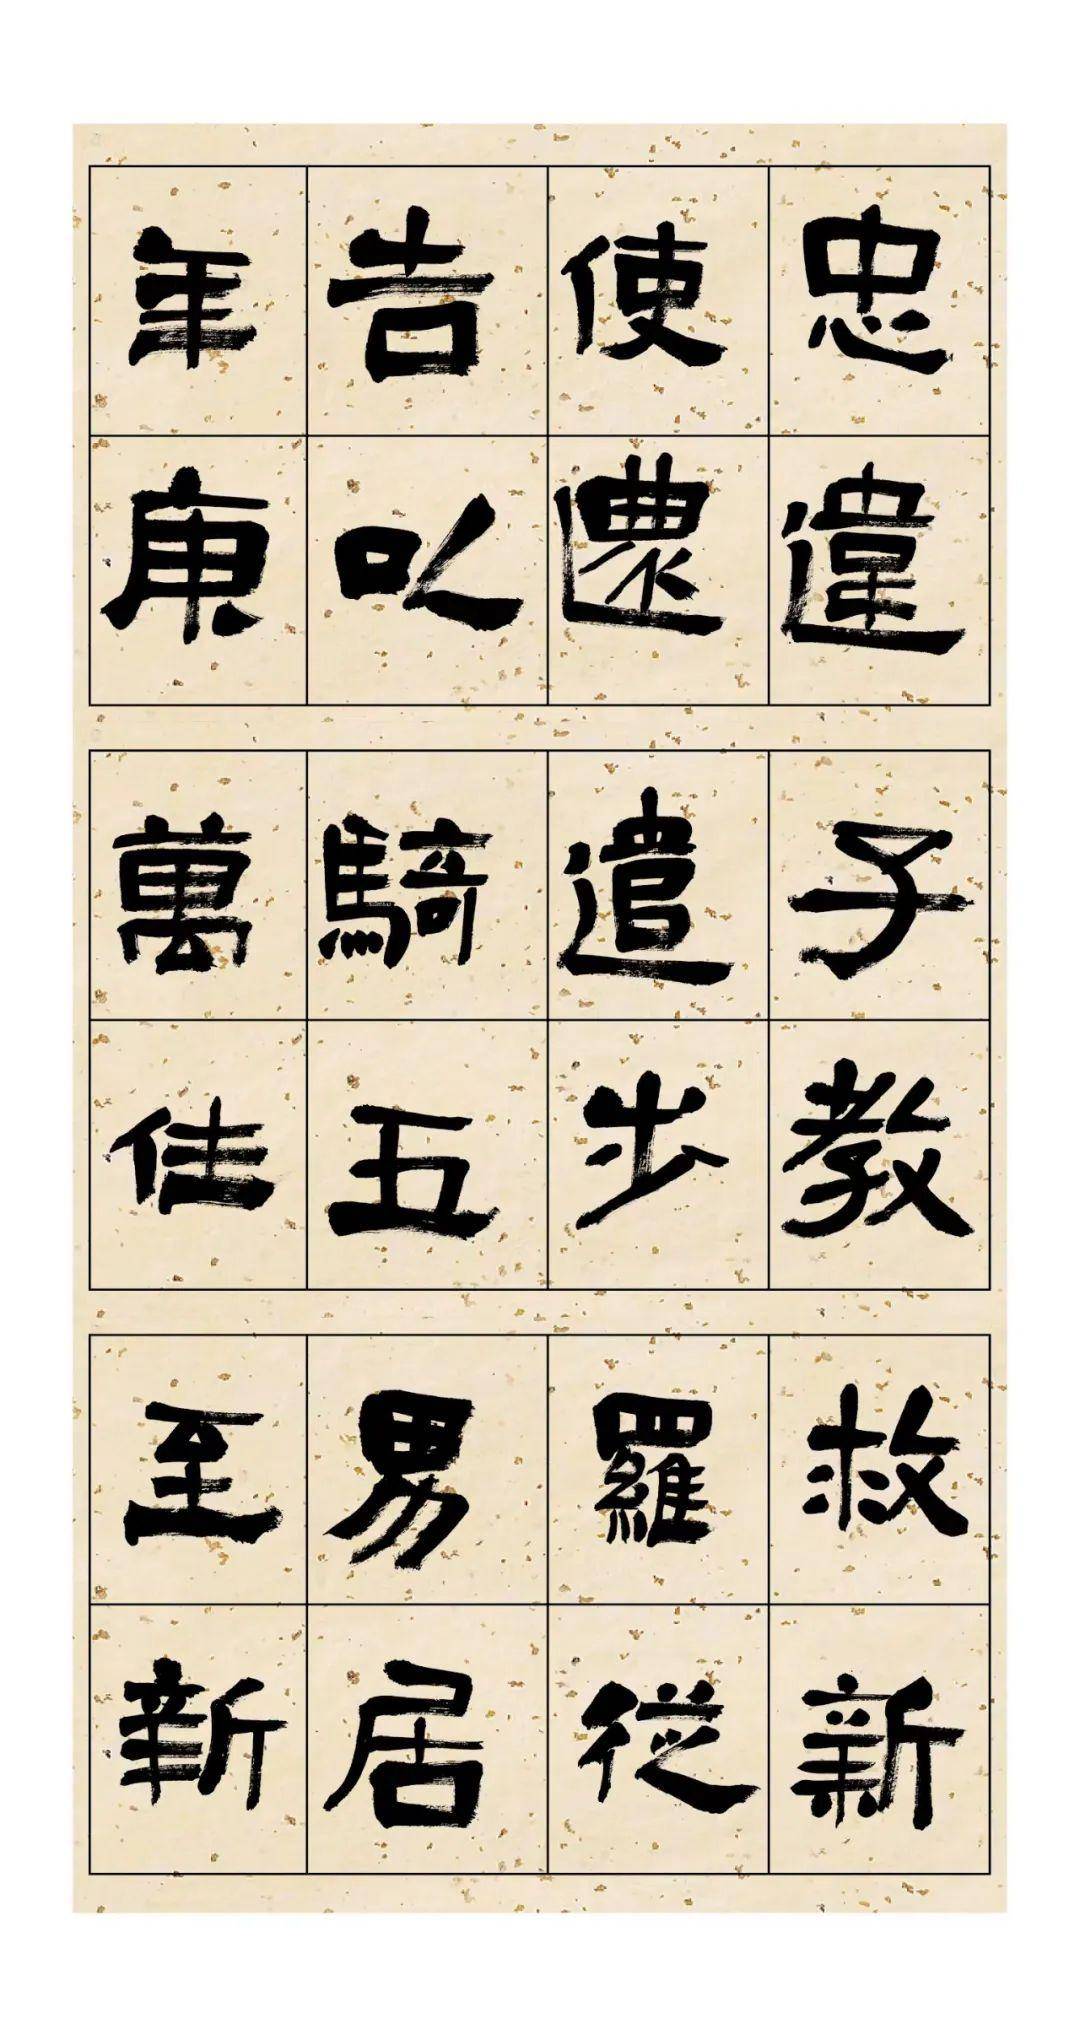 忠違
使還
告以
年庚
子教
遣步
騎五
萬佳
救新
羅從
易居
至新